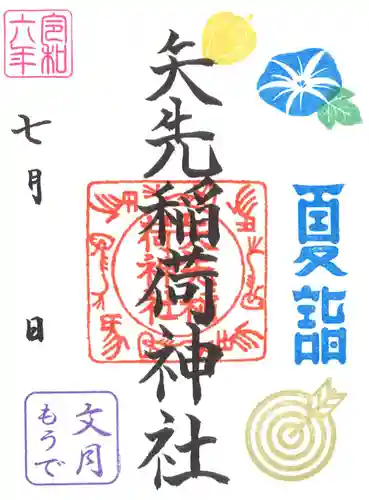 夏詣
矢先稲荷神社
令和
六年
七月　日
文月
もうで